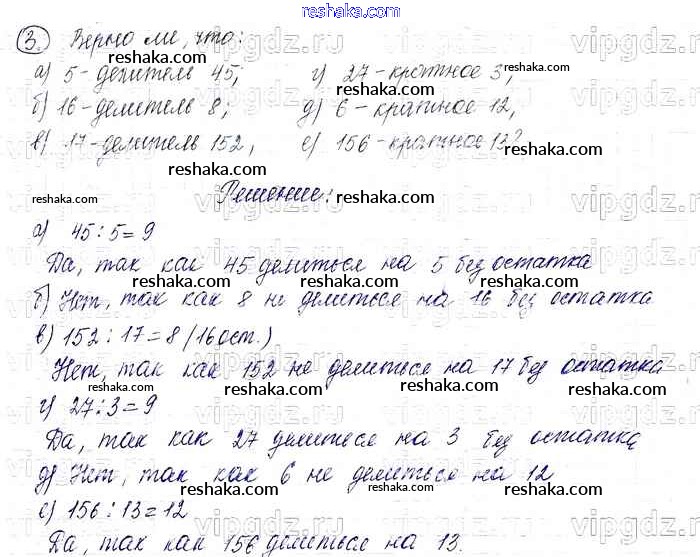 reshaka.com
3. Верно ли, что:
а) 5-делитель 45; г) 27-кратное 3;
б) 16-делитель 8; д) 6-кратное 12,
в) 17-делитель 152, е) 156-кратное 13?
Решение:
а) 45:5=9
Да, так как 45 делиться на 5 без остатка
б) Нет, так как 8 не делиться на 16 без остатка
в) 152:17=8 (16 ост.)
Нет, так как 152 не делиться на 17 без остатка
г) 27:3=9
Да, так как 27 делитесе на 3 без остатка
д) Нет, так как 6 не делиться на 12
е) 156:13=12
Да, так как 156 делиться на 13.